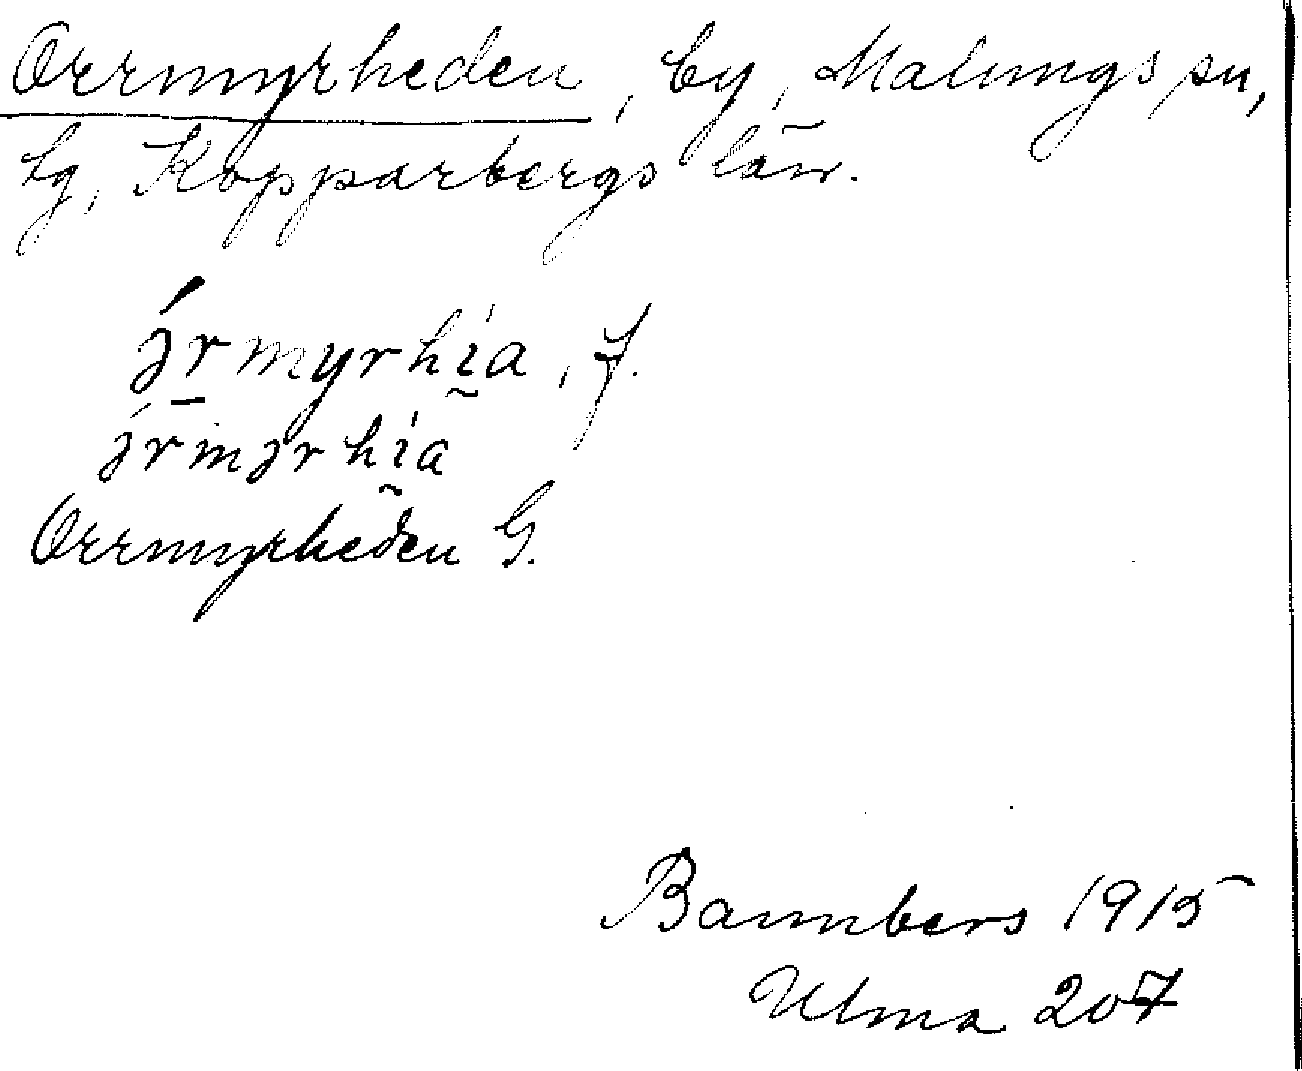 Orrmyrheden, by, Malungs sn,
hg, Kopparbergs län.
ɔ́r̲myrhḭa, f.
ɔ́rmɔrhḭa
Orrmyrheden G.
Bannbers 1915
Ulma 207